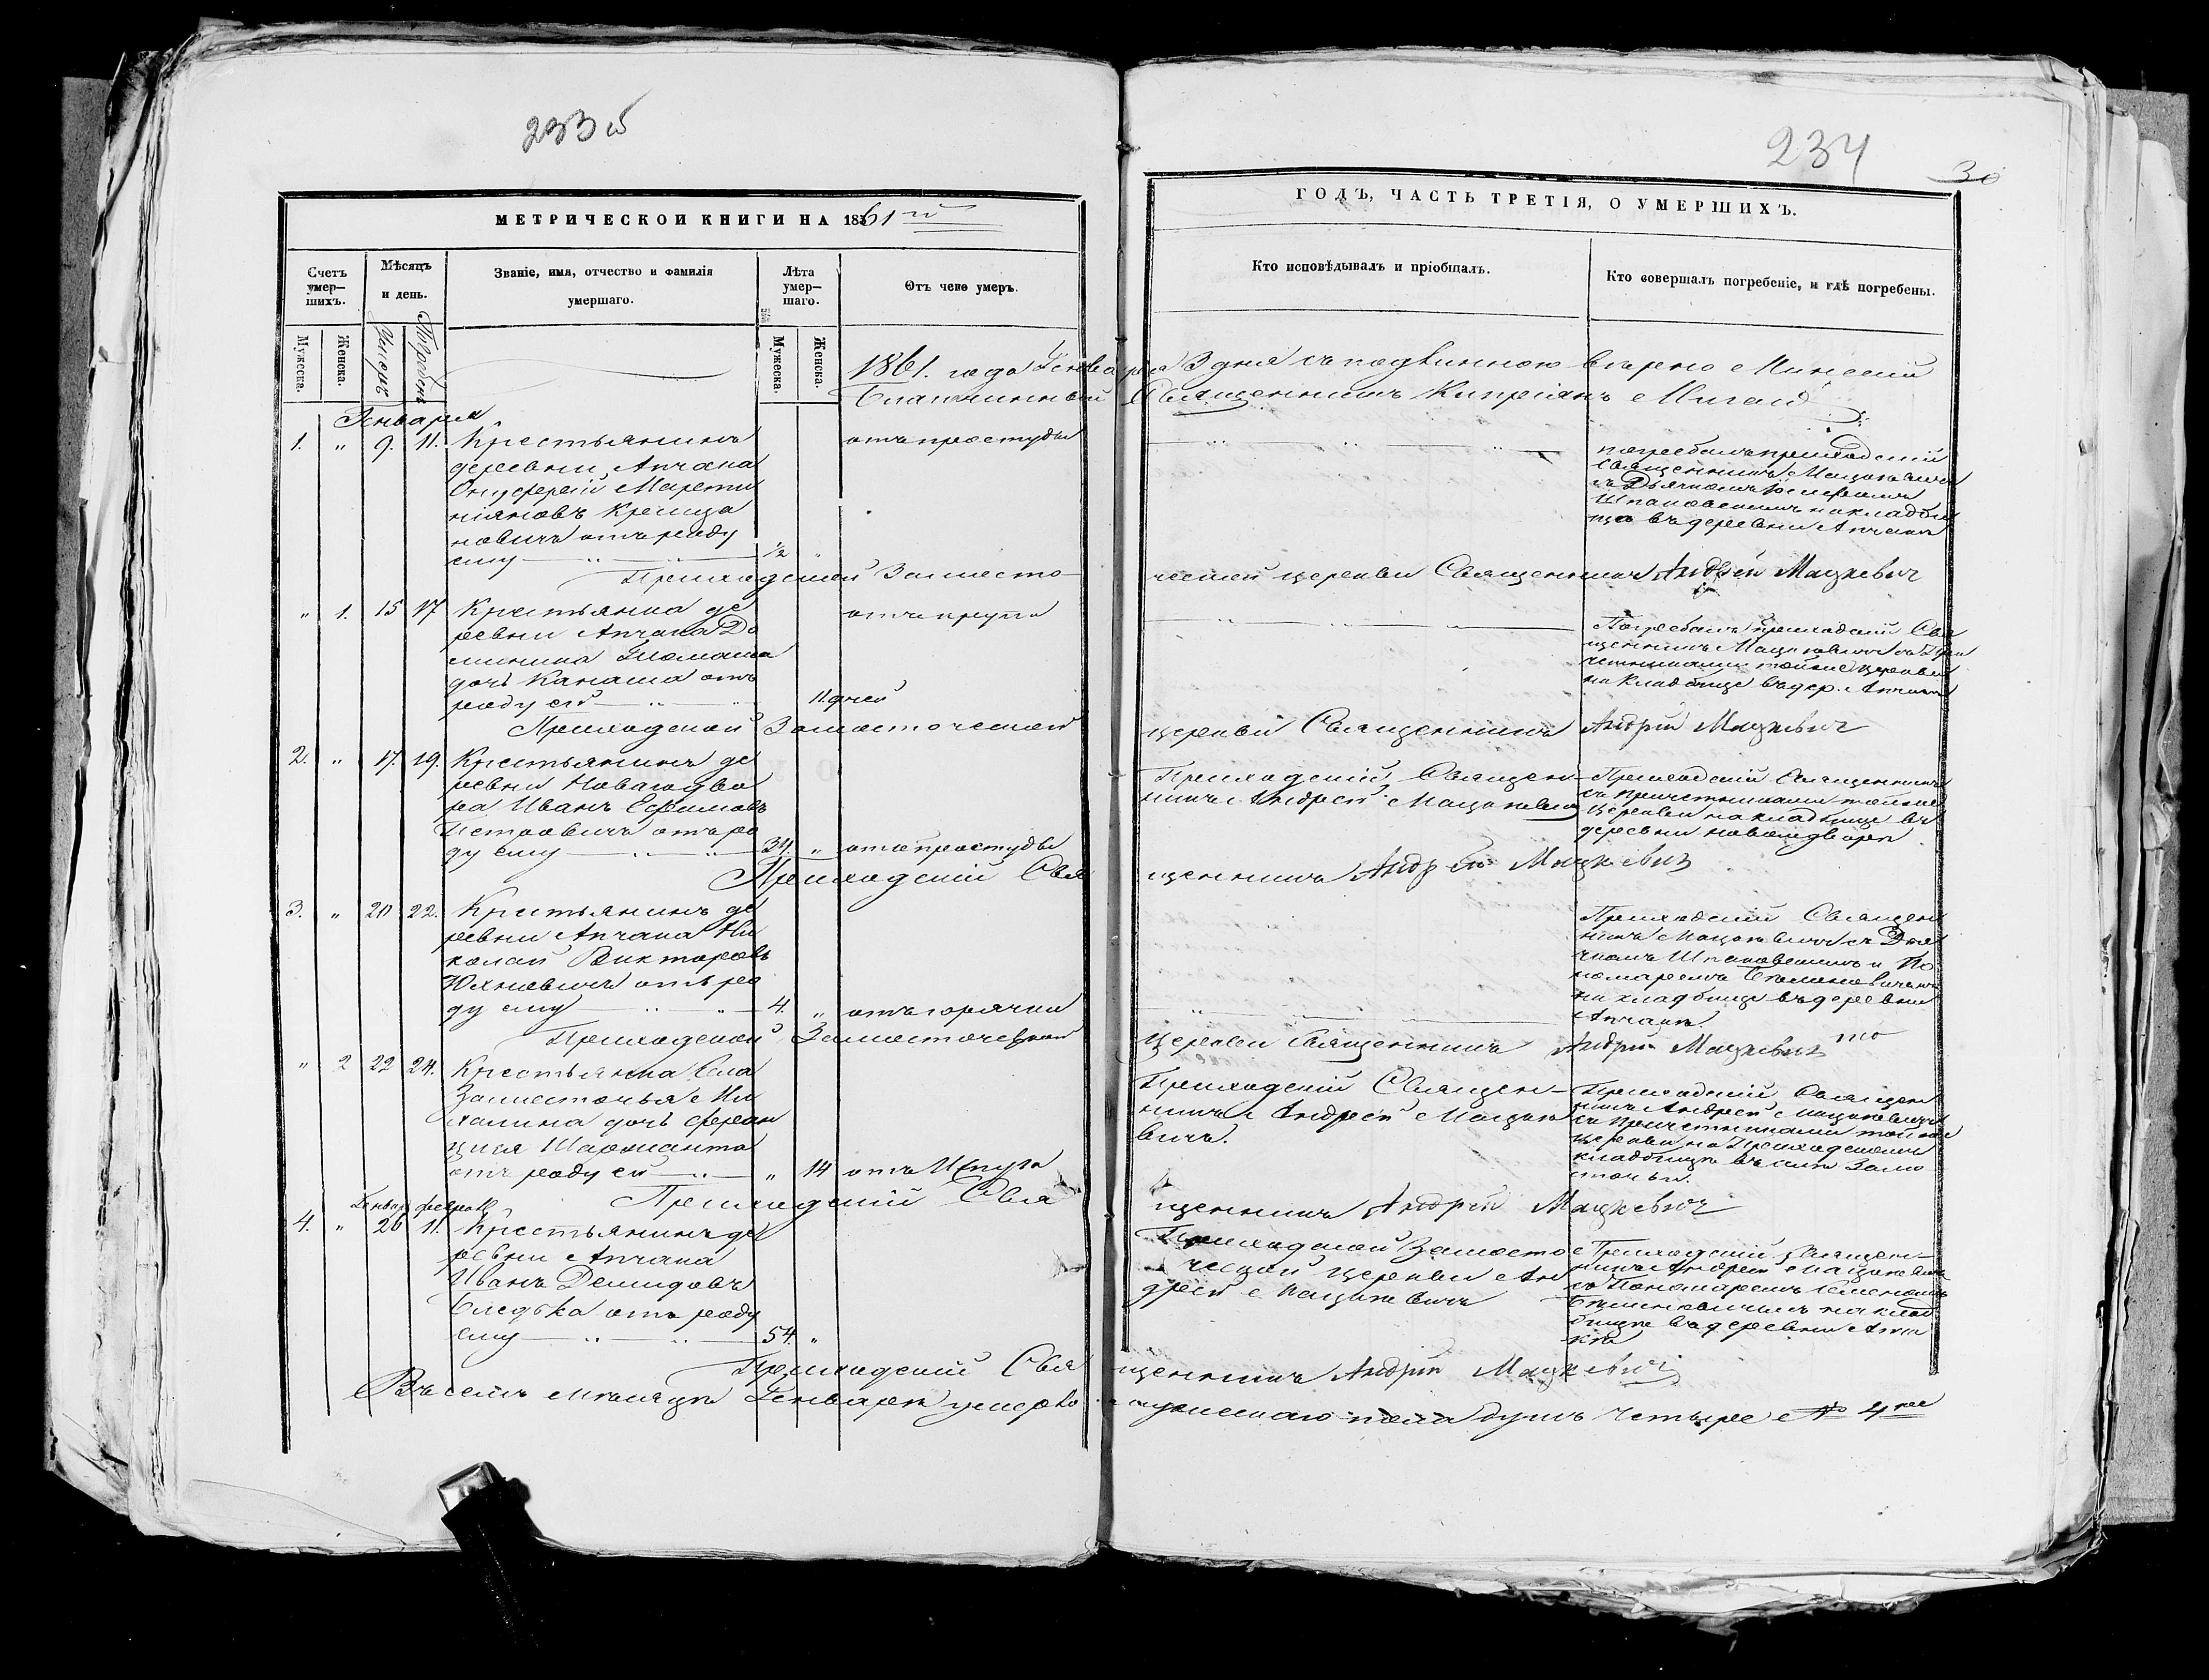 233 об
234
30
МЕТРИЧЕСКОЙ КНИГИ НА 1861й
ГОДЪ, ЧАСТЬ ТРЕТІЯ, О УМЕРШИХЪ.
Счетъ умер-шихъ.
Мѣсяцъ и день.
Званіе, имя, отчество и фамилія умершаго.
Лѣта умер-шаго.
Отъ чего умеръ.
Кто исповѣдывалъ и пріобщалъ.
Кто совершалъ погребеніе, и гдѣ погребены.
Мужеска.
Женска.
Умерь
Погребенъ
Мужеска.
Женска.
1861. года Генваря 3 дня съ подлинною вѣрно
Благочинный Священникъ Кипреіянъ
Генваря
1. " 9. 11. Крестьянинъ
деревни Апчака
Онуфрей Марти
ніяновъ
новичъ отъ роду
ему 1/2 "
отъ простуды
погребалъ приходскій
Священникъ Мацкевичъ
съ Дьячкомъ
на кладби
ща въ деревни Апчака
Приходской Замосто-
ческой церкви Священникъ Андрей Мацкевич
" 1. 15 17 Крестьянка де
ревни Апчака До
миника
дочь Канаша отъ
роду ей 11. дней
отъ крупа
Погребалъ приходскій Свя
щенникъ Мацкевичъ съ При
четниками тойже церкви
на кладбище въ дер. Апчака
Приходской Замосточеской
церкви Священникъ Андрей Мацкевич
2. " 17. 19. Крестьянинъ де
ревни Новагодво
ра Иванъ Ефимовъ
Петровичъ отъ ро
ду ему 34. " отъ простуды
Приходскій Священ-
никъ Андрей Мацкевичъ
Приходскій Священникъ
съ Причетниками тойже
Церкви на кладбище въ
деревни Новомдворѣ
Приходскій Свя
щенникъ Андрей Мацкевич
3. " 20 22. Крестьянинъ де
ревни Апчака Ни
колай Викторовъ
Юхневичъ отъ ро
ду ему 4. " отъ горячки
Приходскій Священ
никъ Мацкевичъ съ Дья
чкомъ и По
номаремъ
на кладбище въ деревни
Апчака.
Приходской Замосточеской
Церкви Священникъ Андрей Мацкевич
" 2 22 24. Крестьянка села
Замосточья Ми
халина дочь Феран
ція
отъ роду ей " 14 отъ
Приходскій Священ-
никъ Андрей Мацке
вичъ.
Приходскій Священ
никъ Андрей Мацкевичъ
съ Причетниками тойже
церкви на Приходскомъ
кладбище въ селѣ Замо
сточьи.
Приходскій Свя
щенникъ Андрей Мацкевич
Генваря Февраля
4. " 26 11. Крестьянинъ де
ревни Апчака
Иванъ Демидовъ
отъ роду
ему 54. "
Приходской Замосто
ческой церкви Ан
дрей Мацкевичъ
Приходскій Священ-
никъ Андрей Мацкевичъ
съ Пономаремъ
на клад
бище въ деревни Апча
ка
Приходскій Свя
щенникъ Андрей Мацкевич
Въ семъ мѣсяцѣ Генварѣ умерло мужескаго пола душъ четыре № 4ре